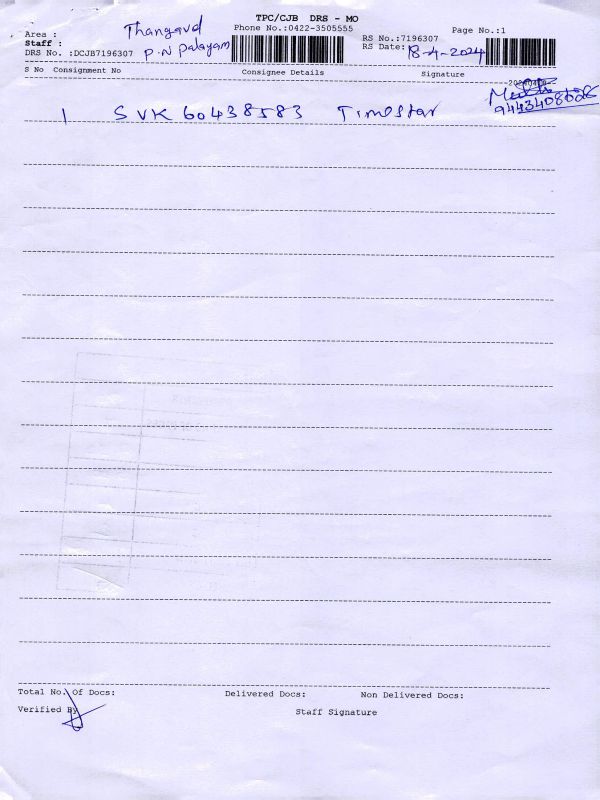 TPC/CJB DRS - MO
Area : Thangavel
Phone No.:0422-3505555
Page No.:1
Staff : P.N Palayam
RS No.:7196307
DRS No. :DCJB7196307
RS Date: 18-4-2024
S No Consignment No Consignee Details Signature
1 SVK 60438583 Timestar
Total No. Of Docs: Delivered Docs: Non Delivered Docs:
Verified By
Staff Signature